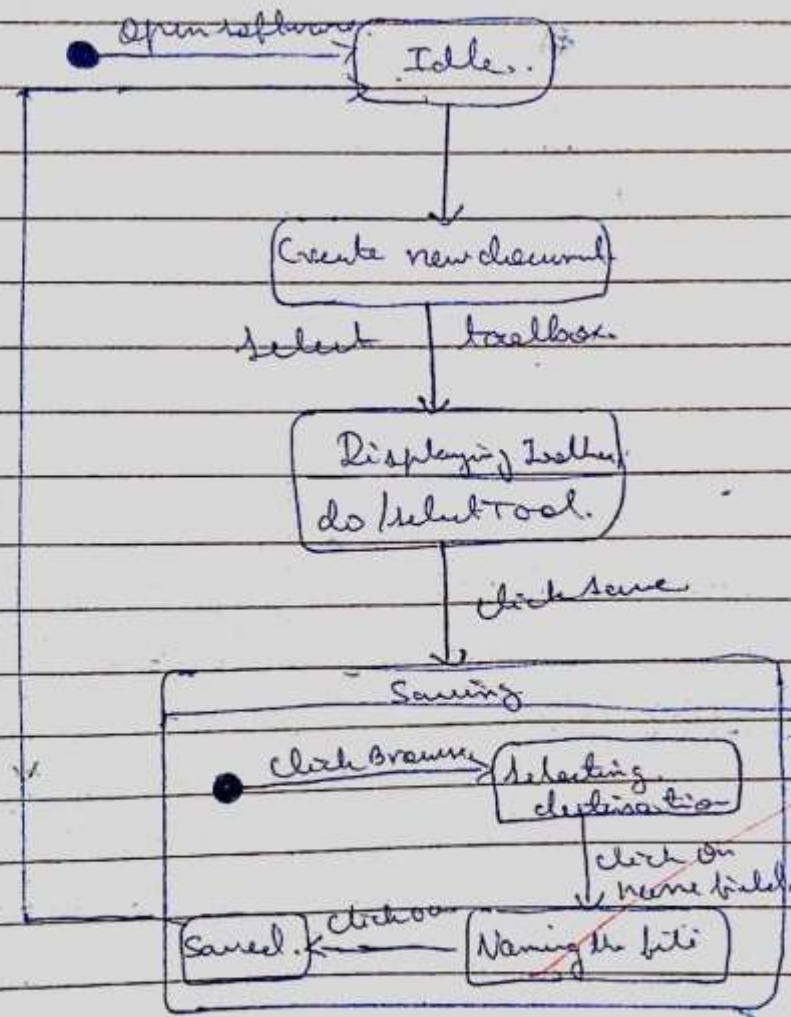 open software
Idle.
Create new document
select toolbox.
Displaying
do / select Tool.
click save
Saving
Click Browse
Selecting
destination
click on
name field.
Saved.
click on
Naming the file